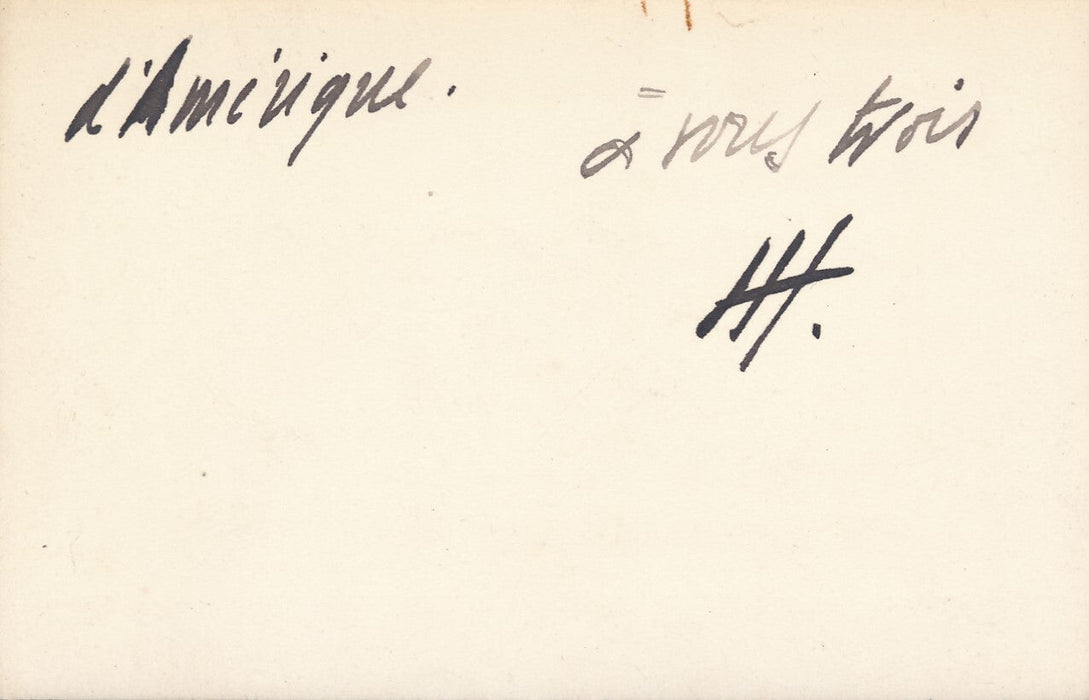 d'Amérique.
à vous trois
HH.